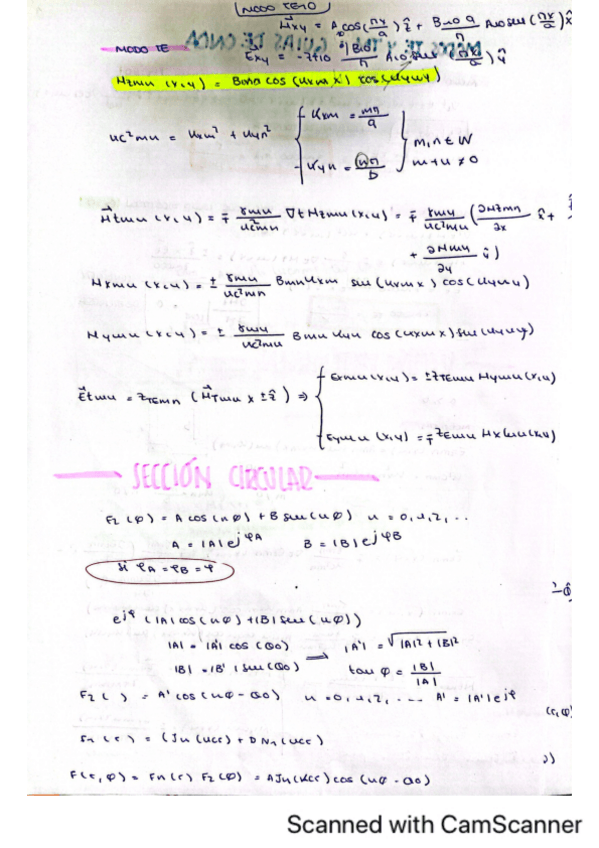 MODO TE10
MODO TE
Hzmn (x,y) = Bmn cos (Kxm x) cos(Kyn y)
Kc²mn = Kxm² + Kyn² { Kxm = mπ/a
Kyn = nπ/b } m,n ∈ N
m+n ≠ 0
Htmn (x,y) = ∓ γmn/Kc²mn ∇t Hzmn (x,y) = ∓ γmn/Kc²mn (∂Hzmn/∂x x̂ +
+ ∂Hzmn/∂y ŷ)
Hxmn (x,y) = ± γmn/Kc²mn Bmn Kxm sen (Kxm x) cos (Kyn y)
Hymn (x,y) = ± γmn/Kc²mn Bmn Kyn cos (Kxm x) sen (Kyn y)
Etmn = ZTEmn (HTmn x ±ẑ) ⇒ { Exmn (x,y) = ±ZTEmn Hymn (x,y)
Eymn (x,y) = ∓ ZTEmn Hxmn (x,y)
SECCIÓN CIRCULAR
F2 (φ) = A cos (nφ) + B sen (nφ) n = 0,1,2,...
A = |A| e^jφA B = |B| e^jφB
si φA = φB = φ
e^jφ (|A| cos (nφ) + |B| sen (nφ))
|A| = |A'| cos (αo) → |A'| = √|A|² + |B|²
|B| = |B'| sen (αo) tan φ = |B|/|A|
F2 ( ) = A' cos (nφ - αo) n = 0,1,2,... A' = |A'| e^jφ
Fn (r) = C Jn (Kcr) + D Nn (Kcr)
F(r,φ) = Fn(r) F2(φ) = A Jn (Kcr) cos (nφ - αo)
Scanned with CamScanner